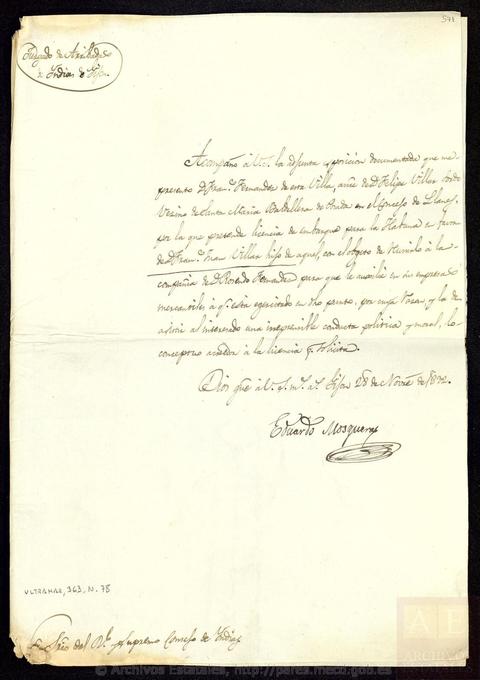 Juzgado de Arribadas
de Indias de Gijon
Acompaño á V.S. la adjunta exposicion documentada que me
presentó D. Fran.co Fernandez de esta Villa, á nre de D. Felipe Villar
Vecino de Santa Maria en el Concejo de Llanes,
por la que pretende licencia de embarque para la Habana en favor
de D. Fran.co Villar hijo de aquel, con el objeto de á la
compañia de D. Rosendo Fernandez para que le auxilie en sus empresas
mercantiles, á q.e esta egercitado en dho punto, por cuya razon, y la de
asistir al interesado una irreprensible conducta politica y moral, lo
conceptuo acredor á la licencia q.e solicita.
Dios gũe á V.S. m.s a.s Gijon 28 de Novre de 1832.
Eduardo Mosquera
ULTRAMAR, 363, N. 78
Srio del R.l y Supremo Consejo de Indias
© Archivos Estatales, http://pares.mecd.gob.es